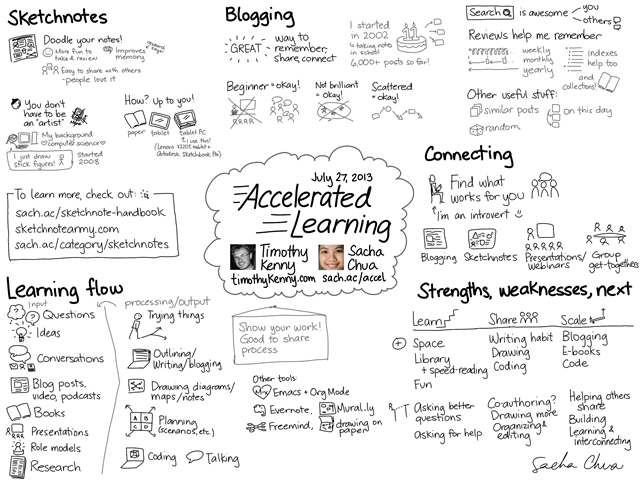 Sketchnotes
Doodle your notes!
More fun to
take & review
Improves
memory
Easy to share with others
- people love it
You don't
have to be
an "artist"
My background
computer science
I just draw
stick figures!
Started
2008
How? Up to you!
paper
tablet
tablet PC
To learn more, check out:
sach.ac/sketchnote-handbook
sketchnotearmy.com
sach.ac/category/sketchnotes
Blogging
GREAT
way to
remember,
share, connect
I started
in 2002
taking notes
in school!
6,000+ posts so far!
11
Beginner = okay!
Not brilliant
= okay!
Scattered
= okay!
Search is awesome
you
others
Reviews help me remember
weekly
monthly
yearly
Indexes
help too
and
collections!
Other useful stuff:
similar posts
on this day
random
July 27, 2013
Accelerated
Learning
Timothy
Kenny
timothykenny.com
Sacha
Chua
sach.ac/accel
Connecting
Find what
works for you
I'm an introvert
Blogging
Sketchnotes
Presentations/
webinars
Group
get-togethers
Learning flow
Input
Questions
Ideas
Conversations
Blog posts,
video, podcasts
Books
Presentations
Role models
Research
processing/output
Trying things
Outlining/
Writing/blogging
Drawing diagrams/
maps/notes
Planning
(scenarios, etc.)
A B
C D
Coding
Talking
Show your work!
Good to share
process
Other tools:
Emacs + Org Mode
Evernote,
Mural.ly
Freemind,
drawing on
paper
Strengths, weaknesses, next
Learn
Share
Scale
+
Space
Library
+ speed-reading
Fun
Writing habit
Drawing
Coding
Blogging
E-books
Code
Asking better
questions
Asking for help
Co-authoring?
Drawing more
Organizing &
editing
Helping others
share
Building
Learning &
interconnecting
Sacha Chua